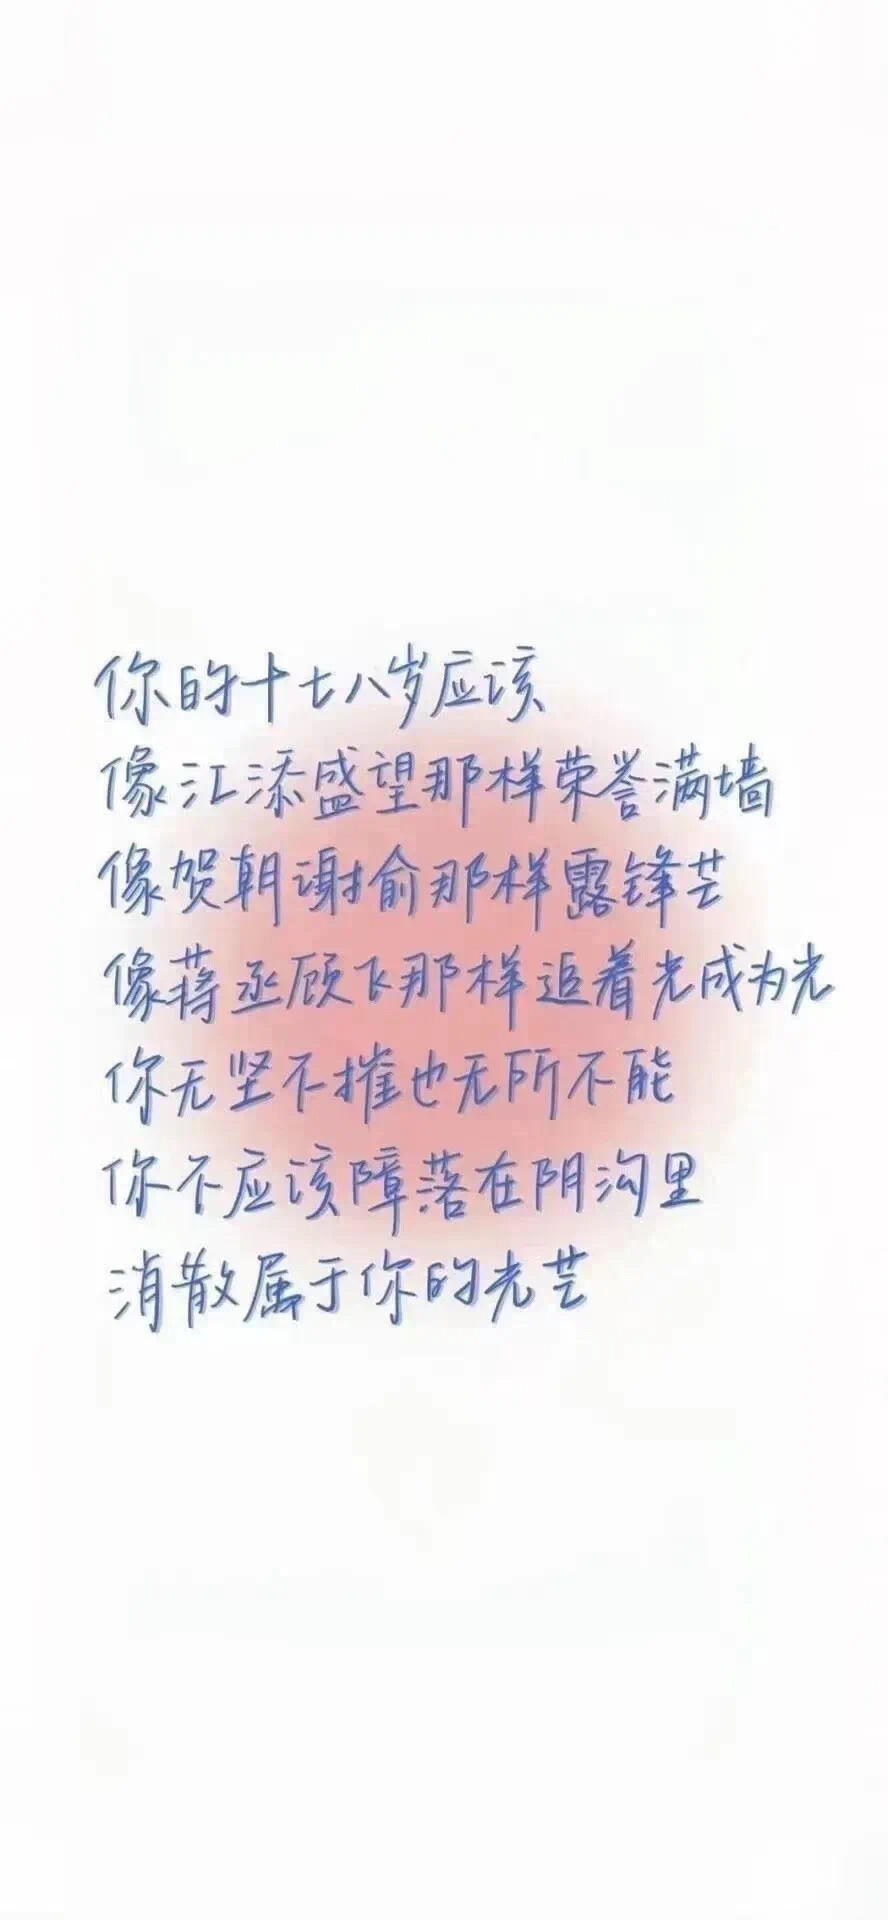 你的十七八岁应该
像江添盛望那样荣誉满墙
像贺朝谢俞那样露锋芒
像蒋丞顾飞那样追着光成为光
你无坚不摧也无所不能
你不应该障落在阴沟里
消散属于你的光芒